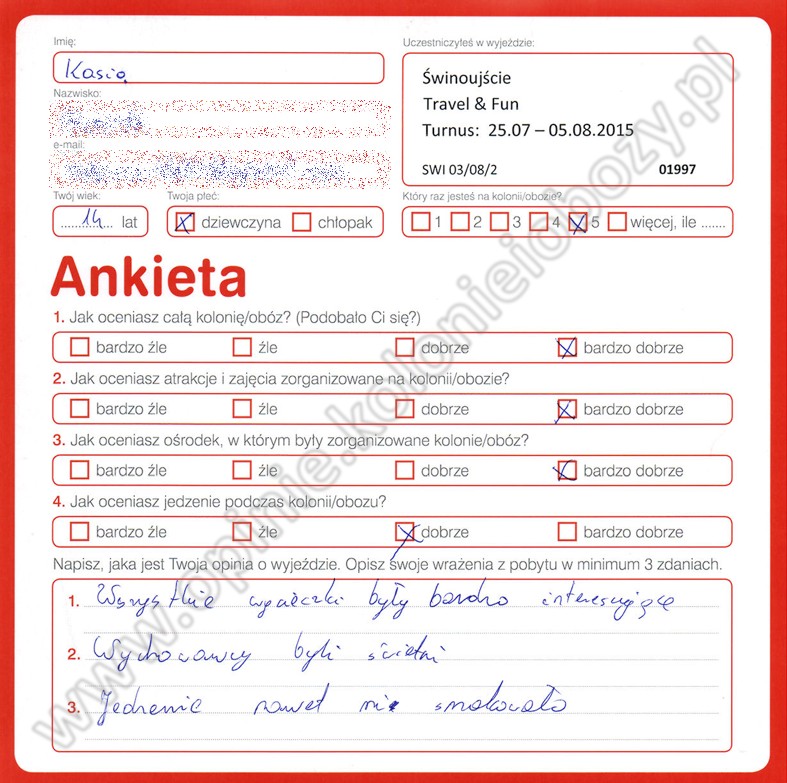 Imię:
Kasia
Uczestniczyłeś w wyjeździe:
Świnoujście
Travel & Fun
Turnus: 25.07 – 05.08.2015
SWI 03/08/2 01997
Nazwisko:
e-mail:
Twój wiek:
14 lat
Twoja płeć:
dziewczyna chłopak
Który raz jesteś na kolonii/obozie?
1 2 3 4 5 więcej, ile .......
Ankieta
1. Jak oceniasz całą kolonię/obóz? (Podobało Ci się?)
bardzo źle źle dobrze bardzo dobrze
2. Jak oceniasz atrakcje i zajęcia zorganizowane na kolonii/obozie?
bardzo źle źle dobrze bardzo dobrze
3. Jak oceniasz ośrodek, w którym były zorganizowane kolonie/obóz?
bardzo źle źle dobrze bardzo dobrze
4. Jak oceniasz jedzenie podczas kolonii/obozu?
bardzo źle źle dobrze bardzo dobrze
Napisz, jaka jest Twoja opinia o wyjeździe. Opisz swoje wrażenia z pobytu w minimum 3 zdaniach.
1. Wszystkie wycieczki były bardzo interesujące
2. Wychowawcy byli świetni
3. Jedzenie nawet mi smakowało
www.opinie.kolonieiobozy.pl